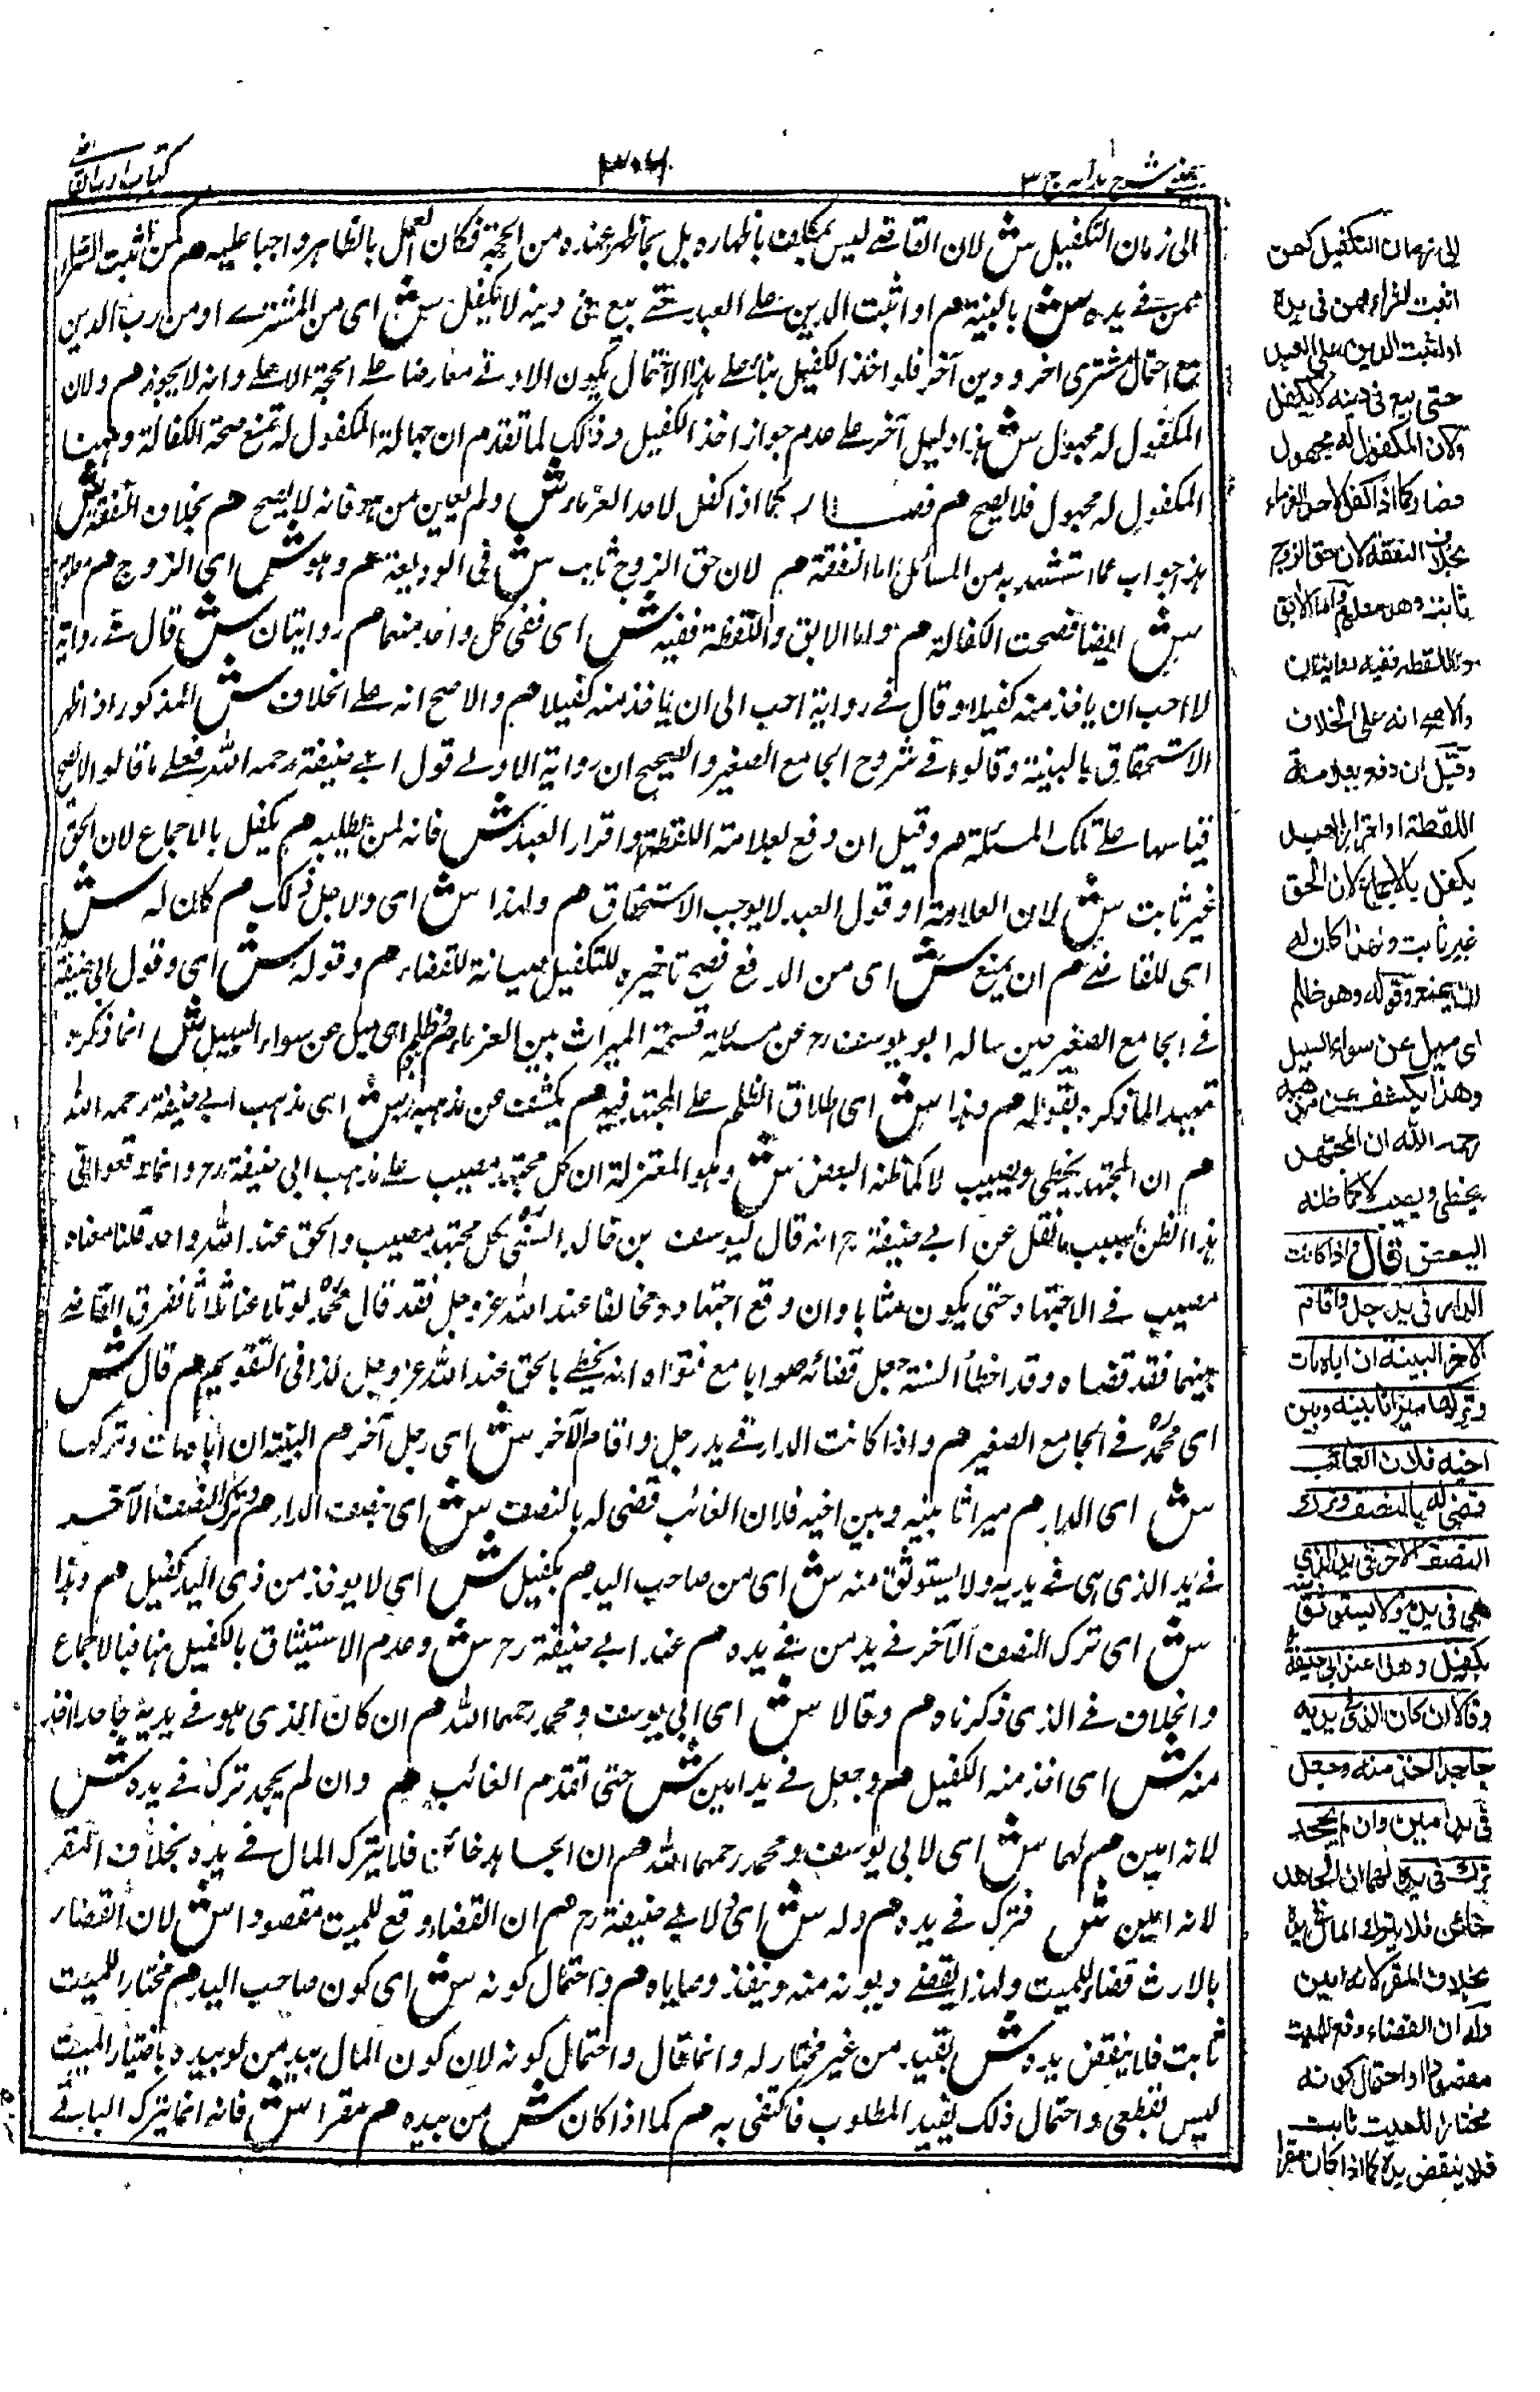 عینی شرح ہدایہ ج ۳
۳۰۶
کتاب ادب القاضی
الی زمان التکفیل ش لان القاضے لیس بمکلف باظہارہ بل بما ظہر عندہ من الحجۃ فکان العمل بالظاہر واجبا علیہ ھم کمن اثبت الشراء
ممن فے یدہ ش بالبینۃ ھم او اثبت الدین علے العبد حتے بیع فی دینہ لا یکفل ش ای من المشترے او من رب الدین
مع احتمال مشتری اخر و دین آخر فلو اخذ الکفیل بناء علے ہذا الاحتمال یکون الادنے معارضا علے الحجۃ الاعلے وانہ لا یجوز ھم ولان
المکفول لہ مجہول ش ہذا دلیل آخر علے عدم جواز اخذ الکفیل وذلک لما تقدم ان جہالۃ المکفول لہ تمنع صحۃ الکفالۃ وہہنا
المکفول لہ مجہول فلا یصح ھم فصار کما اذا کفل لاحد الغرماء ش ولم یعین من ہو فانہ لا یصح ھم بخلاف النفقۃ ش
ہذا جواب عما استشہد بہ من المسائل اما النفقۃ ھم لان حق الزوج ثابت ش فی الودیعۃ ھم وہو ش ای الزوج ھم معلوم
ش ایضا فصحت الکفالۃ ھم واما الابق واللقطۃ ففیہ ش ای ففی کل واحد منہما ھم روایتان ش قال فے روایۃ
لا احب ان یاخذ منہ کفیلا وقال فے روایۃ احب الی ان یاخذ منہ کفیلا ھم والاصح انہ علے الخلاف ش المذکور اذ اظہر
الاستحقاق بالبینۃ وقالوا فے شروح الجامع الصغیر والصحیح ان روایۃ الاولے قول ابے حنیفۃ رحمہ اللہ فعلے ما قالوا لا یصح
قیاسہا علے تلک المسئلۃ ھم وقیل ان دفع بعلامۃ اللقطۃ واقرار العبد ش فانہ لمن یطلبہ ھم یکفل بالاجماع لان الحق
غیر ثابت ش لان العلامۃ او قول العبد لا یوجب الاستحقاق ھم ولہذا ش ای ولاجل ذلک ھم کان لہ ش
ای للقاضے ھم ان یمنع ش ای من الدفع فصح تاخیرہ للتکفیل صیانۃ للقضاء ھم وقولہ ش ای وقول ابی حنیفۃ
فے الجامع الصغیر حین سالہ ابو یوسف رح عن مسئلۃ قسمۃ المیراث بین الغرماء ھم ظلم ای میل عن سواء السبیل ش انما ذکرہ
تمہیدا لما ذکرہ بقولہ ھم وہذا ش ای اطلاق الظلم علے المجتہد فیہ ھم یکشف عن مذہبہ ش ای مذہب ابے حنیفۃ رحمہ اللہ
ھم ان المجتہد یخطی ویصیب لا کما ظنہ البعض ش وہو المعتزلۃ ان کل مجتہد مصیب علے مذہب ابی حنیفۃ رح وانما وقعوا فی
ہذا الظن بسبب ما نقل عن ابے حنیفۃ رح انہ قال لیوسف بن خالد السمتی کل مجتہد مصیب والحق عند اللہ واحد قلنا معناہ
مصیب فے الاجتہاد حتی یکون مثابا وان وقع اجتہادہ مخالفا عند اللہ عز وجل فقد قال محمد لو تلاعنا ثلاثا ففرق القاضے
بینہما فقد قضاہ وقد اخطأ السنۃ جعل قضائہ صوابا مع فتواہ انہ یخطے بالحق عند اللہ عز وجل کذا فی التقویم ھم قال ش
ای محمد فے الجامع الصغیر ھم واذا کانت الدار فے ید رجل واقام الآخر ش ای رجل آخر ھم البینۃ ان اباہ مات وترکہا
ش ای الدار ھم میراثا بینہ وبین اخیہ فلان الغائب قضی لہ بالنصف ش ای بنصف الدار ھم وترک النصف الآخر
فے ید الذی ہی فے یدیہ ولا یستوثق منہ ش ای من صاحب الید ھم بکفیل ش ای لا یوخذ من ذی الید کفیل ھم وہذا
ش ای ترک النصف الآخر فے ید من فے یدہ ھم عند ابے حنیفۃ رح ش وعدم الاستیثاق بالکفیل ہہنا بالاجماع
والخلاف فے الذی ذکرناہ ھم وقالا ش ای ابی یوسف ومحمد رحمہما اللہ ھم ان کان الذی ہو فے یدیہ جاحدا اخذ
منہ ش ای اخذ منہ الکفیل ھم وجعل فے ید امین ش حتی یقدم الغائب ھم وان لم یجحد ترک فے یدہ ش
لانہ امین ھم لہما ش ای لابی یوسف ومحمد رحمہما اللہ ھم ان الجاحد خائن فلا یترک المال فے یدہ بخلاف المقر
لانہ امین ش فترک فے یدہ ھم ولہ ش ای لابے حنیفۃ رح ھم ان القضاء وقع للمیت مقصودا ش لان القضاء
بالارث قضاء للمیت ولہذا یقضے دیونہ منہ وینفذ وصایاہ ھم واحتمال کونہ ش ای کون صاحب الید ھم مختار المیت
ثابت فلا ینقض یدہ ش بقید من غیر مختار لہ وانما قال واحتمال کونہ لان کون المال بید من ہو بیدہ باختیار المیت
لیس بقطعی واحتمال ذلک یفید المطلوب فاکتفی بہ ھم کما اذا کان ش من بیدہ ھم مقرا ش فانہ انما یترک الباقے
الی زمان التکفیل کمن
اثبت الشراء ممن فی یدہ
او اثبت الدین علی العبد
حتی بیع فی دینہ لا یکفل
ولان المکفول لہ مجهول
فصار کما اذا کفل لاحد الغرماء
بخلاف النفقة لان حق الزوج
ثابت وهو معلوم واما الآبق
واللقطة ففیه روایتان
والاصح انه علی الخلاف
وقیل ان دفع بعلامة
اللقطة او اقرار العبد
یکفل بالاجماع لان الحق
غیر ثابت ولهذا کان له
ان یمنع وقوله وهو ظلم
ای میل عن سواء السبیل
وهذا یکشف عن مذهبه
رحمه الله ان المجتهد
یخطی ویصیب لا کما ظنه
البعض قال واذا کانت
الدار فی ید رجل واقام
الآخر البینة ان اباه مات
وترکها میراثا بینه وبین
اخیه فلان الغائب
قضی له بالنصف وترك
النصف الآخر فی ید الذی
هی فی یده ولا یستوثق منه
بکفیل وهذا عند ابی حنیفة
وقالا ان کان الذی فی یدیه
جاحدا اخذ منه وجعل
فی ید امین وان لم یجحد
ترك فی یده لهما ان الجاحد
خائن فلا یترك المال فی یده
بخلاف المقر لانه امین
وله ان القضاء وقع للمیت
مقصودا واحتمال کونه
مختارا للمیت ثابت
فلا ینقض یده کما اذا کان مقرا